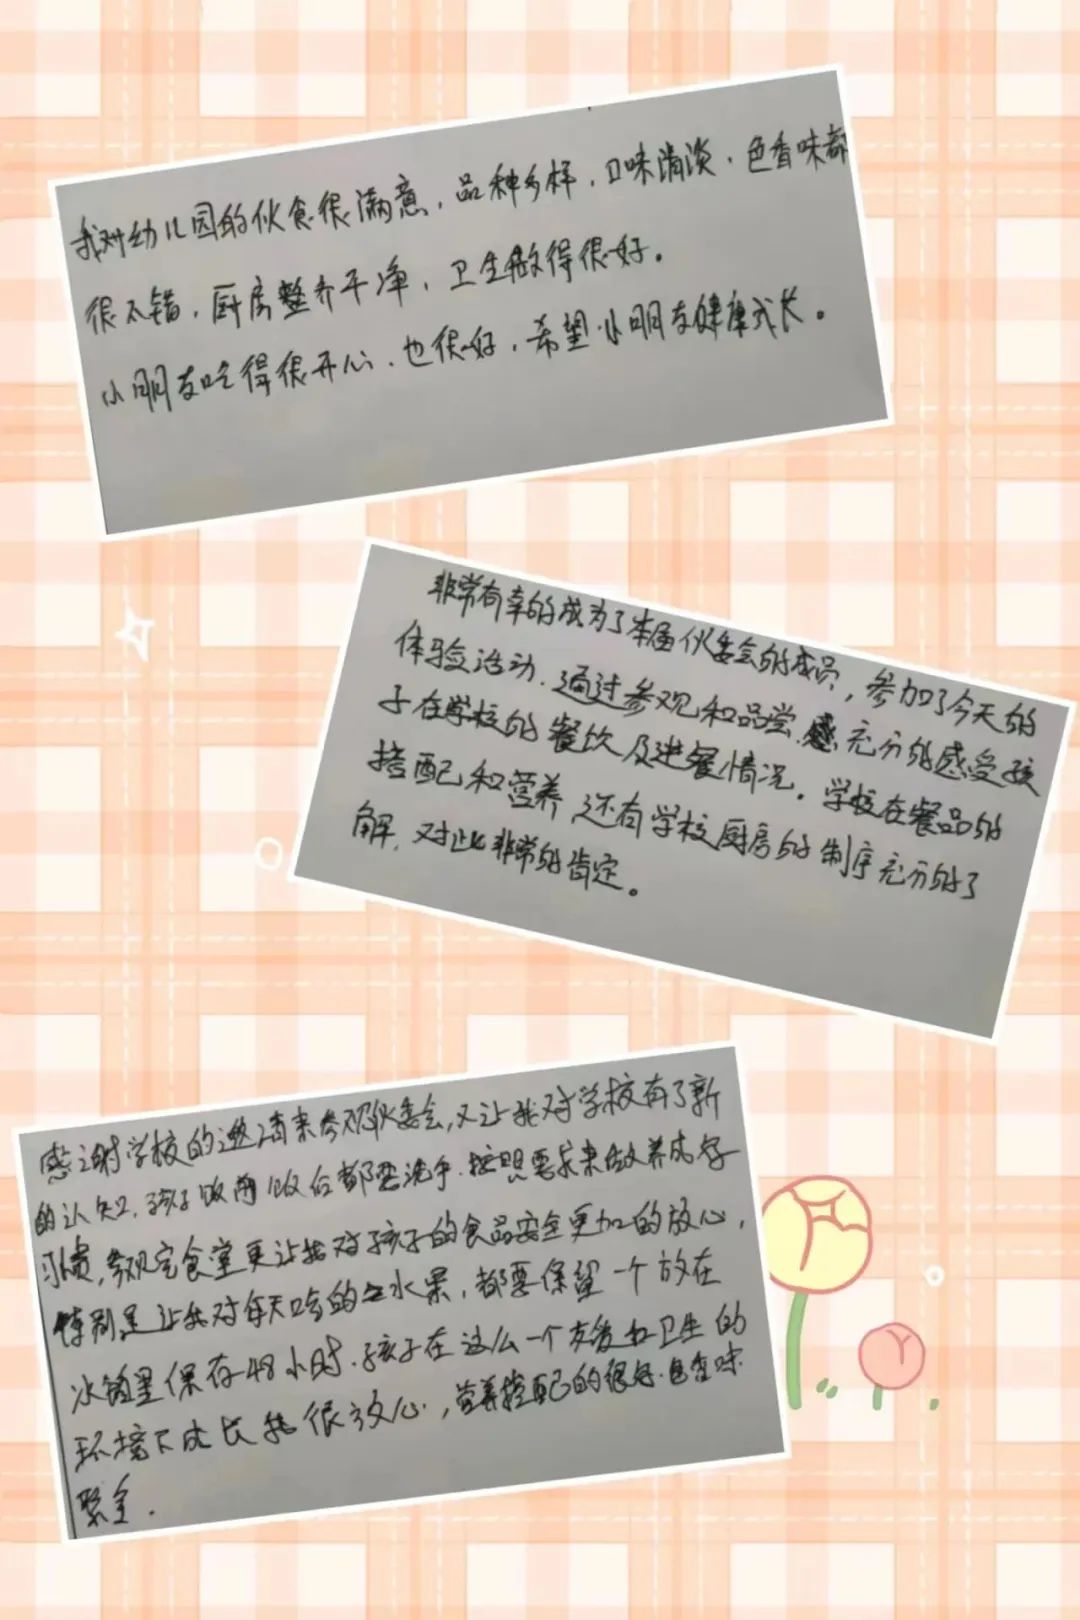 我对幼儿园的伙食很满意，品种多样，口味清淡，色香味都
很不错，厨房整齐干净，卫生做得很好。
小朋友吃得很开心，也很好，希望小朋友健康成长。
非常有幸的成为了本届伙委会的成员，参加了今天的
体验活动，通过参观和品尝，充分的感受孩
子在学校的餐饮及进餐情况。学校在餐品的
搭配和营养还有学校厨房的制序充分的了
解，对此非常的肯定。
感谢学校的邀请来参观伙委会，又让我对学校有了新
的认知，孩子饭前饭后都要洗手，按照要求来做养成好
习惯，参观完食堂更让我对孩子的食品安全更加的放心，
特别是让我对每天吃的水果，都要保留一个放在
冰箱里保存48小时，孩子在这么一个友爱和卫生的
环境下成长我很放心，营养搭配的很好，色香味
聚全．